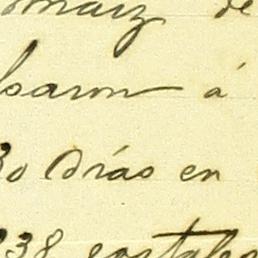 maiz de
saron á
30 dias en
38 costales